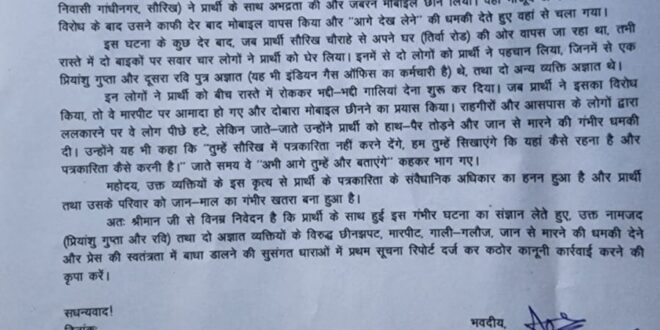 निवासी गांधीनगर, सौरिख) ने प्रार्थी के साथ अभद्रता की और जबरन मोबाइल छीन लिया। वहां
विरोध के बाद उसने काफी देर बाद मोबाइल वापस किया और "आगे देख लेने" की धमकी देते हुए वहां से चला गया।
इस घटना के कुछ देर बाद, जब प्रार्थी सौरिख चौराहे से अपने घर (तिर्वा रोड) की ओर वापस जा रहा था, तभी
रास्ते में दो बाइकों पर सवार चार लोगों ने प्रार्थी को घेर लिया। इनमें से दो लोगों को प्रार्थी ने पहचान लिया, जिनमें से एक
प्रियांशु गुप्ता और दूसरा रवि पुत्र अज्ञात (यह भी इंडियन गैस ऑफिस का कर्मचारी है) थे, तथा दो अन्य व्यक्ति अज्ञात थे।
इन लोगों ने प्रार्थी को बीच रास्ते में रोककर भद्दी-भद्दी गालियां देना शुरू कर दिया। जब प्रार्थी ने इसका विरोध
किया, तो वे मारपीट पर आमादा हो गए और दोबारा मोबाइल छीनने का प्रयास किया। राहगीरों और आसपास के लोगों द्वारा
ललकारने पर वे लोग पीछे हटे, लेकिन जाते-जाते उन्होंने प्रार्थी को हाथ-पैर तोड़ने और जान से मारने की गंभीर धमकी
दी। उन्होंने यह भी कहा कि "तुम्हें सौरिख में पत्रकारिता नहीं करने देंगे, हम तुम्हें सिखाएंगे कि यहां कैसे रहना है और
पत्रकारिता कैसे करनी है।" जाते समय वे "अभी आगे तुम्हें और बताएंगे" कहकर भाग गए।
महोदय, उक्त व्यक्तियों के इस कृत्य से प्रार्थी के पत्रकारिता के संवैधानिक अधिकार का हनन हुआ है और प्रार्थी
तथा उसके परिवार को जान-माल का गंभीर खतरा बना हुआ है।
अतः श्रीमान जी से विनम्र निवेदन है कि प्रार्थी के साथ हुई इस गंभीर घटना का संज्ञान लेते हुए, उक्त नामजद
(प्रियांशु गुप्ता और रवि) तथा दो अज्ञात व्यक्तियों के विरुद्ध छीनझपट, मारपीट, गाली-गलौज, जान से मारने की धमकी देने
और प्रेस की स्वतंत्रता में बाधा डालने की सुसंगत धाराओं में प्रथम सूचना रिपोर्ट दर्ज कर कठोर कानूनी कार्रवाई करने की
कृपा करें।
सधन्यवाद!
भवदीय,
दिनांक: